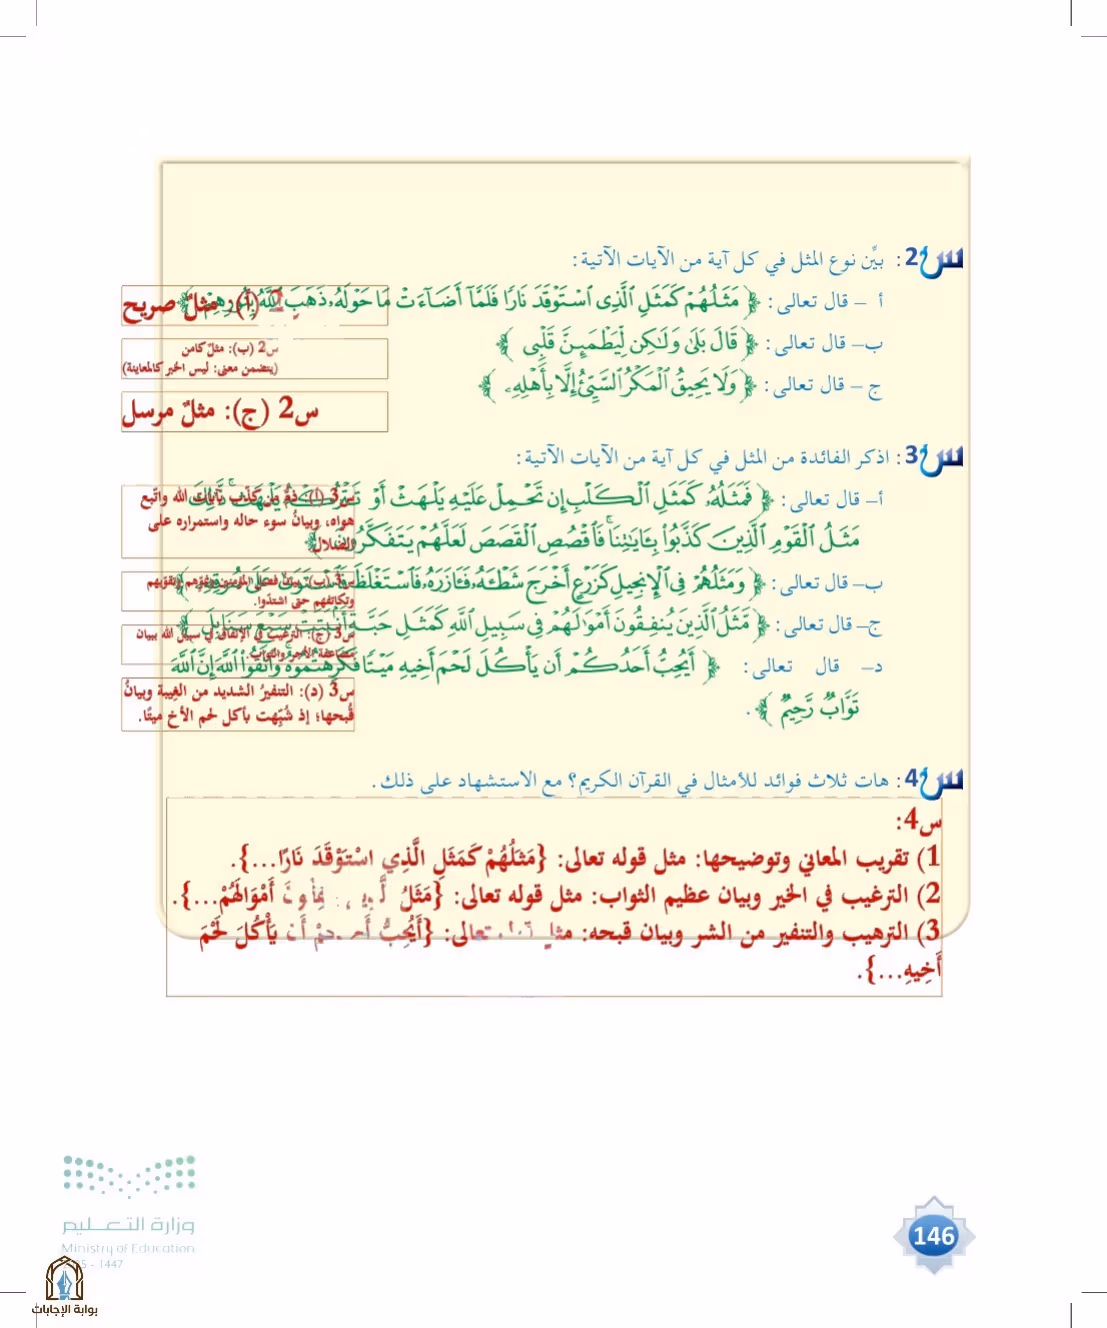 س2: بيِّن نوع المثل في كل آية من الآيات الآتية:
أ – قال تعالى: ﴿ مَثَلُهُمْ كَمَثَلِ الَّذِى اسْتَوْقَدَ نَارًا فَلَمَّآ أَضَآءَتْ مَا حَوْلَهُۥ ذَهَبَ اللَّهُ بِنُورِهِمْ ﴾
2 (أ): مثلٌ صريح
ب– قال تعالى: ﴿ قَالَ بَلَىٰ وَلَٰكِن لِّيَطْمَئِنَّ قَلْبِى ﴾
س2 (ب): مثلٌ كامن
(يتضمن معنى: ليس الخبر كالمعاينة)
ج – قال تعالى: ﴿ وَلَا يَحِيقُ الْمَكْرُ السَّيِّئُ إِلَّا بِأَهْلِهِۦ ﴾
س2 (ج): مثلٌ مرسل
س3: اذكر الفائدة من المثل في كل آية من الآيات الآتية:
أ– قال تعالى: ﴿ فَمَثَلُهُۥ كَمَثَلِ الْكَلْبِ إِن تَحْمِلْ عَلَيْهِ يَلْهَثْ أَوْ تَتْرُكْهُ يَلْهَث ۚ ذَّٰلِكَ
مَثَلُ الْقَوْمِ الَّذِينَ كَذَّبُوا۟ بِـَٔايَٰتِنَا ۚ فَاقْصُصِ الْقَصَصَ لَعَلَّهُمْ يَتَفَكَّرُونَ ﴾
س3 (أ): ذمُّ من كذّب بآيات الله واتّبع
هواه، وبيانُ سوء حاله واستمراره على
الضلال.
ب– قال تعالى: ﴿ وَمَثَلُهُمْ فِى الْإِنجِيلِ كَزَرْعٍ أَخْرَجَ شَطْـَٔهُۥ فَـَٔازَرَهُۥ فَاسْتَغْلَظَ فَاسْتَوَىٰ عَلَىٰ سُوقِهِۦ ﴾
س3 (ب): بيانُ فضل المؤمنين ونموّهم وتقوّيهم
وتكاتفهم حتى اشتدّوا.
ج– قال تعالى: ﴿ مَّثَلُ الَّذِينَ يُنفِقُونَ أَمْوَٰلَهُمْ فِى سَبِيلِ اللَّهِ كَمَثَلِ حَبَّةٍ أَنۢبَتَتْ سَبْعَ سَنَابِلَ ﴾
س3 (ج): الترغيب في الإنفاق في سبيل الله ببيان
مضاعفة الأجر والثواب.
د– قال تعالى: ﴿ أَيُحِبُّ أَحَدُكُمْ أَن يَأْكُلَ لَحْمَ أَخِيهِ مَيْتًا فَكَرِهْتُمُوهُ ۚ وَاتَّقُوا۟ اللَّهَ ۚ إِنَّ اللَّهَ
تَوَّابٌ رَّحِيمٌ ﴾ .
س3 (د): التنفيرُ الشديد من الغِيبة وبيانُ
قُبحها؛ إذ شُبِّهت بأكل لحم الأخ ميتًا.
س4: هات ثلاث فوائد للأمثال في القرآن الكريم؟ مع الاستشهاد على ذلك.
س4:
1) تقريب المعاني وتوضيحها: مثل قوله تعالى: {مَثَلُهُمْ كَمَثَلِ الَّذِي اسْتَوْقَدَ نَارًا...}.
2) الترغيب في الخير وبيان عظيم الثواب: مثل قوله تعالى: {مَثَلُ أَمْوَالَهُمْ...}.
3) الترهيب والتنفير من الشر وبيان قبحه: مثل تعالى: {أَيُحِبُّ أَن يَأْكُلَ لَحْمَ
أَخِيهِ...}.
وزارة التعليم
Ministry of Education
5 - 1447
146
بوابة الإجابات